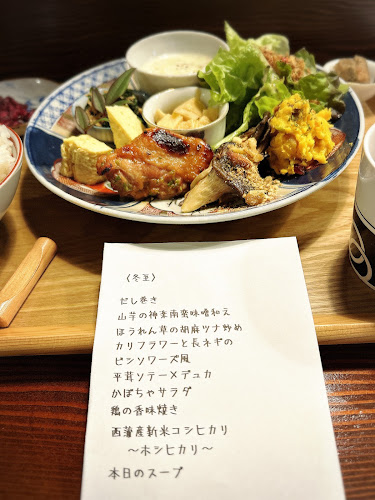 〈冬至〉
だし巻き
山芋の神楽南蛮味噌和え
ほうれん草の胡麻ツナ炒め
カリフラワーと長ネギの
ピンソワーズ風
平茸ソテーメデュカ
かぼちゃサラダ
鶏の香味焼き
西蒲産新米コシヒカリ
〜ホシヒカリ〜
本日のスープ